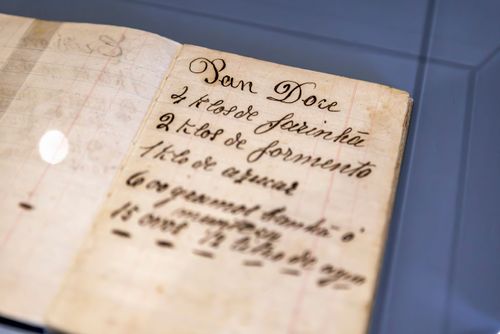 Pan Doce
4 klos de farinhã
2 klos de formento
1 klo de azucar
600 gramos banha o
15 ovos ½ litro de agua